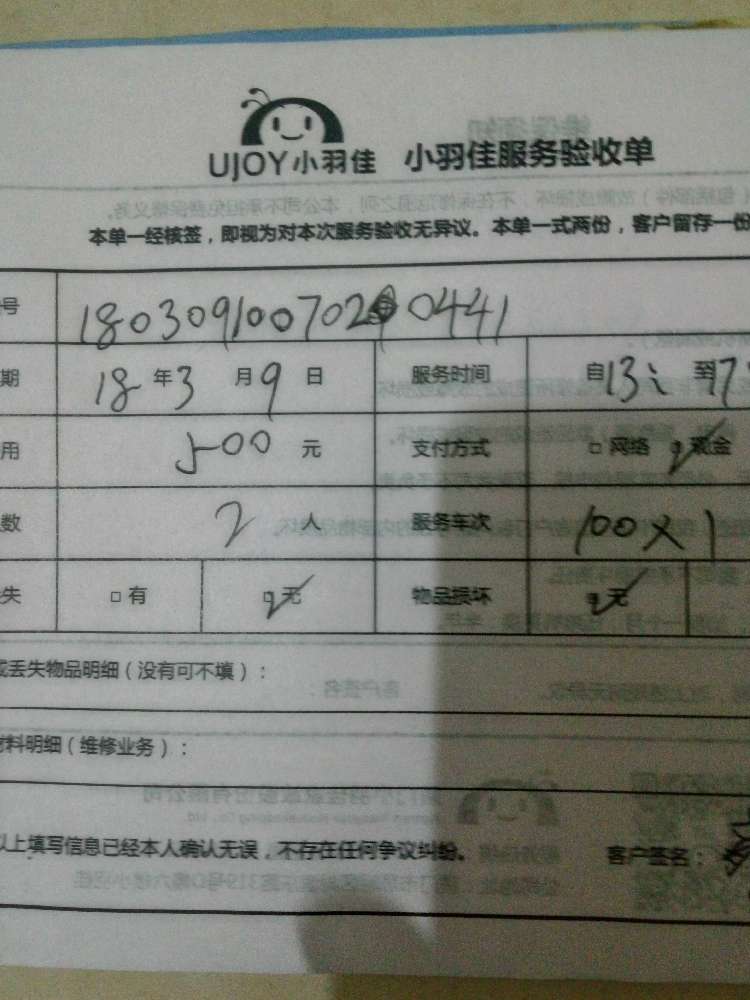 UJOY小羽佳 小羽佳服务验收单
本单一经核签，即视为对本次服务验收无异议。本单一式两份，客户留存一份
号 1803091007020441
期 18年3月9日 服务时间 自13: 至17:
用 500元 支付方式 □网络 ☑现金
数 2人 服务车次 100×1
失 □有 ☑无 物品损坏 ☑无
或丢失物品明细（没有可不填）：
材料明细（维修业务）：
以上填写信息已经本人确认无误，不存在任何争议纠纷。 客户签名：